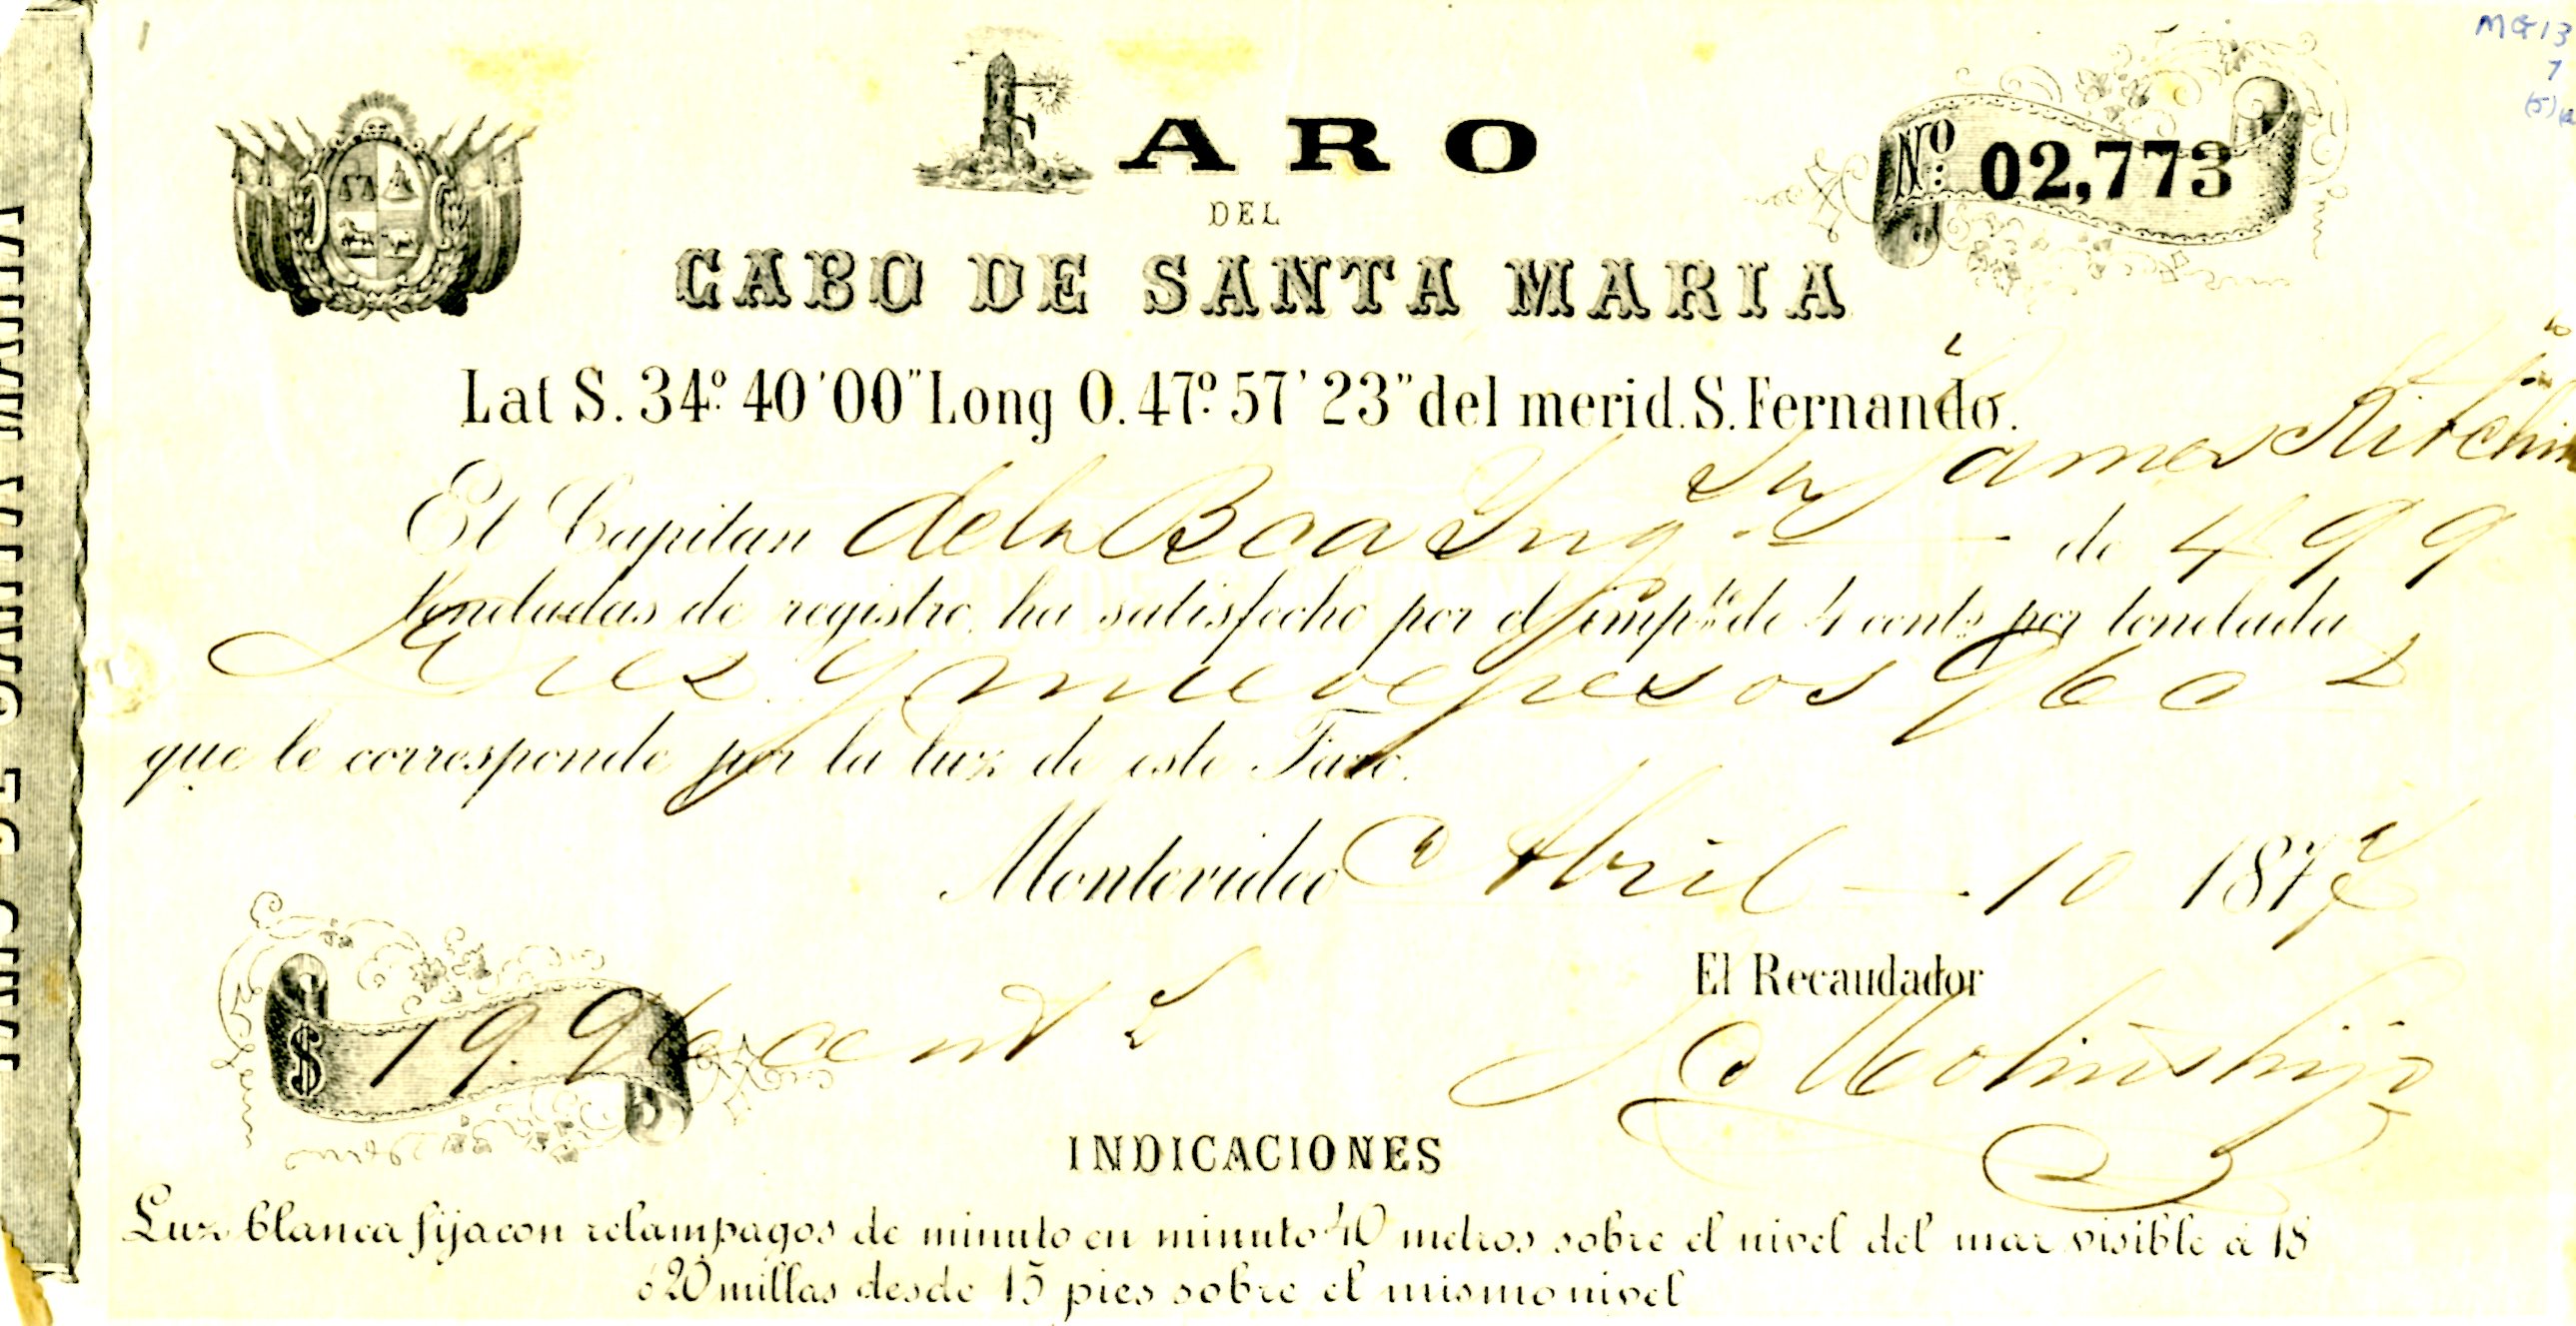 MG13
7
FARO
DEL
CABO DE SANTA MARIA
Nº 02,773
Lat S. 34º 40'00" Long O. 47º 57'23" del merid. S. Fernando.
James
El Capitan dela Bca Ing de 499
toneladas de registro, ha satisfecho por el impto de 4 cents por tonelada
Diez y nueve pesos 96 c
que le corresponde por la luz de este Faro.
Montevideo Abril 10 187
$ 19.96 cent
El Recaudador
hijo
INDICACIONES
Luz blanca fija con relampagos de minuto en minuto 40 metros sobre el nivel del mar visible a 18
ó 20 millas desde 15 pies sobre el mismo nivel